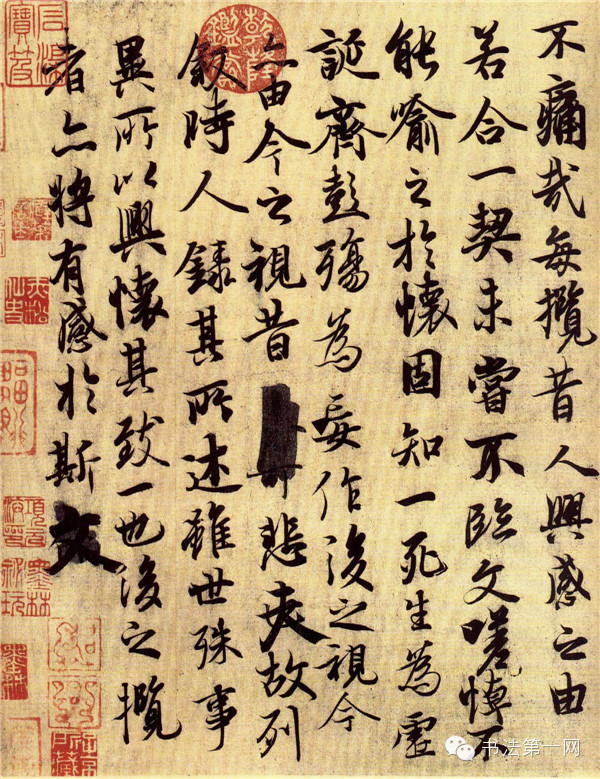 不痛哉每攬昔人興感之由
若合一契未嘗不臨文嗟悼不
能喻之於懷固知一死生為虛
誕齊彭殤為妄作後之視今
亦由今之視昔
悲夫故列
敘時人錄其所述雖世殊事
異所以興懷其致一也後之攬
者亦將有感於斯文
书法第一网